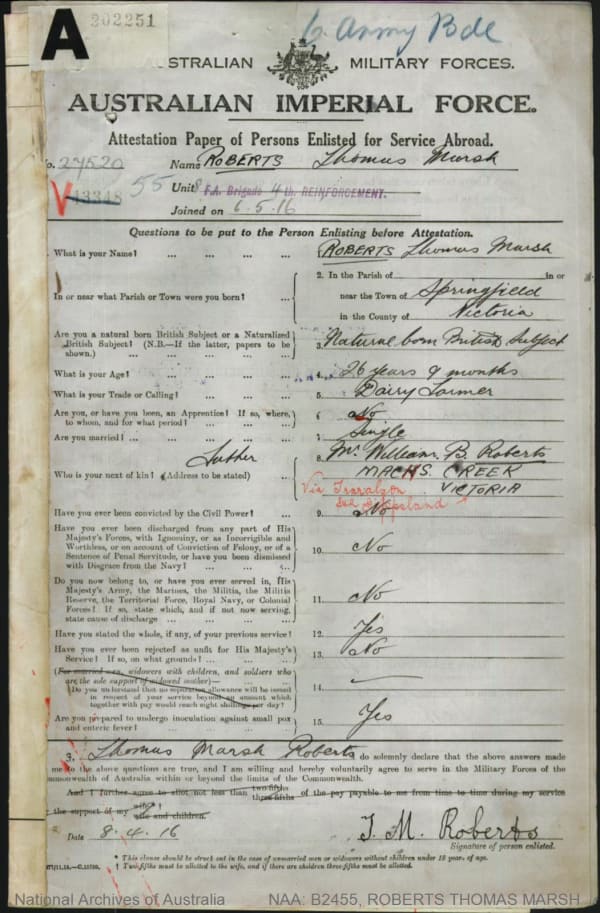 A
202251
6 Army Bde
AUSTRALIAN MILITARY FORCES.
AUSTRALIAN IMPERIAL FORCE.
Attestation Paper of Persons Enlisted for Service Abroad.
No. 27520 Name ROBERTS Thomas Marsh
V 13348 55 Unit 8 F.A. Brigade 4th REINFORCEMENT.
Joined on 6.5.16
Questions to be put to the Person Enlisting before Attestation.
What is your Name? ... ... ... ... ROBERTS Thomas Marsh
In or near what Parish or Town were you born? ... 2. In the Parish of in or
near the Town of Springfield
in the County of Victoria
Are you a natural born British Subject or a Naturalized
British Subject? (N.B.—If the latter, papers to be
shown.) ... ... ... ... ... 3. Natural born British Subject
What is your Age? ... ... ... ... 4. 26 years 9 months
What is your Trade or Calling? ... ... ... 5. Dairy Farmer
Are you, or have you been, an Apprentice? If so, where,
to whom, and for what period? ... ... ... 6. No
Are you married? ... ... ... ... 7. Single
Who is your next of kin? (Address to be stated) ... father 8. Mr William B. Roberts
MACKS CREEK
VICTORIA
Via Traralgon
Gippsland
Have you ever been convicted by the Civil Power? ... 9. No
Have you ever been discharged from any part of His
Majesty's Forces, with Ignominy, or as Incorrigible and
Worthless, or on account of Conviction of Felony, or of a
Sentence of Penal Servitude, or have you been dismissed
with Disgrace from the Navy? ... ... ... 10. No
Do you now belong to, or have you ever served in, His
Majesty's Army, the Marines, the Militia, the Militia
Reserve, the Territorial Force, Royal Navy, or Colonial
Forces? If so, state which, and if not now serving,
state cause of discharge ... ... ... ... 11. No
Have you stated the whole, if any, of your previous service? 12. Yes
Have you ever been rejected as unfit for His Majesty's
Service? If so, on what grounds? ... ... ... 13. No
(For married men, widowers with children, and soldiers who
are the sole support of widowed mother)— ... ...
Do you understand that no separation allowance will be issued
in respect of your service beyond an amount which
together with pay would reach eight shillings per day? 14. —
Are you prepared to undergo inoculation against small pox
and enteric fever? ... ... ... ... 15. Yes
I, Thomas Marsh Roberts do solemnly declare that the above answers made
me to the above questions are true, and I am willing and hereby voluntarily agree to serve in the Military Forces of the
Commonwealth of Australia within or beyond the limits of the Commonwealth.
And I further agree to allot not less than two-fifths three-fifths of the pay payable to me from time to time during my service
the support of my wife† wife and children.
Date 8.4.16 T. M. Roberts
Signature of person enlisted.
* This clause should be struck out in the case of unmarried men or widowers without children under 18 years of age.
† Two-fifths must be allotted to the wife, and if there are children three-fifths must be allotted.
National Archives of Australia NAA: B2455, ROBERTS THOMAS MARSH